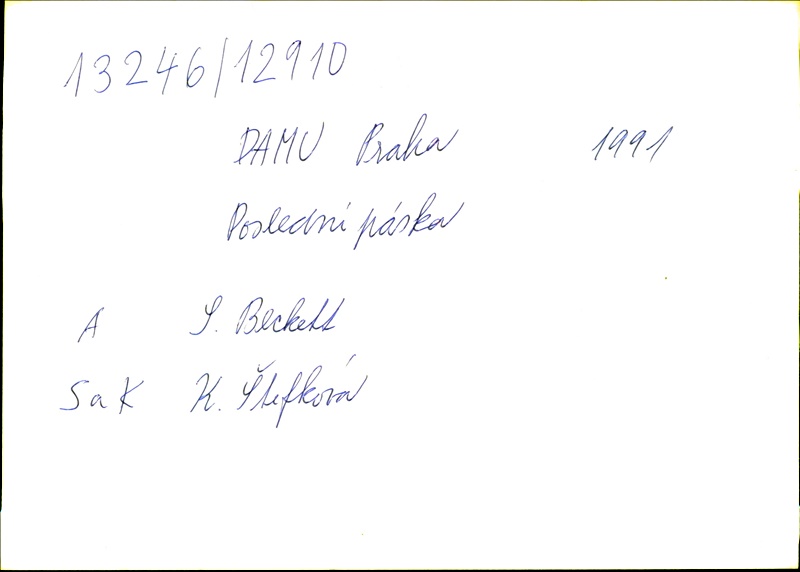 13246/12910
DAMU Praha 1991
Poslední páska
A S. Beckett
S a K K. Štefková